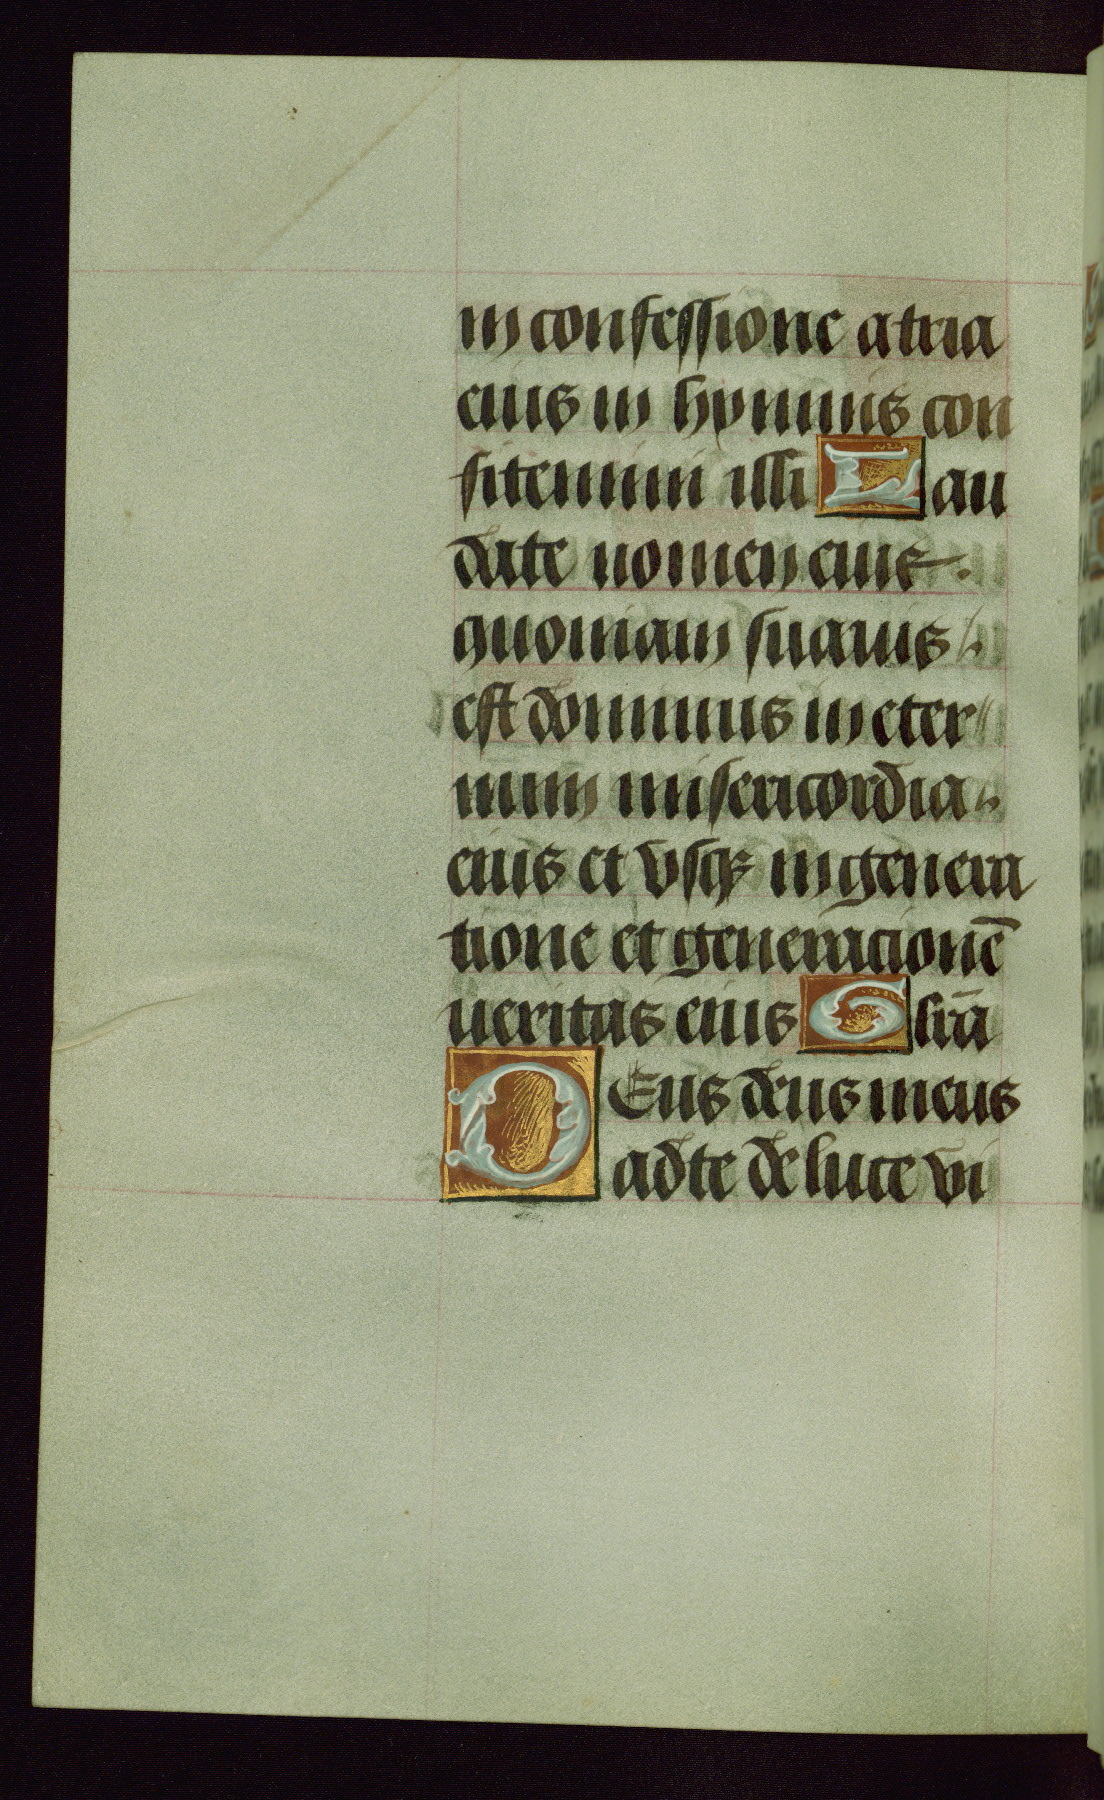 in confessione atria
eius in hymnis con
fitemini illi Lau
date nomen eius.
quoniam suauis
est dominus in eter
num misericordia
eius et vsqꝫ in genera
tione et generacionē
ueritas eius G lria̅
DEus deus meus
ad te de luce vi